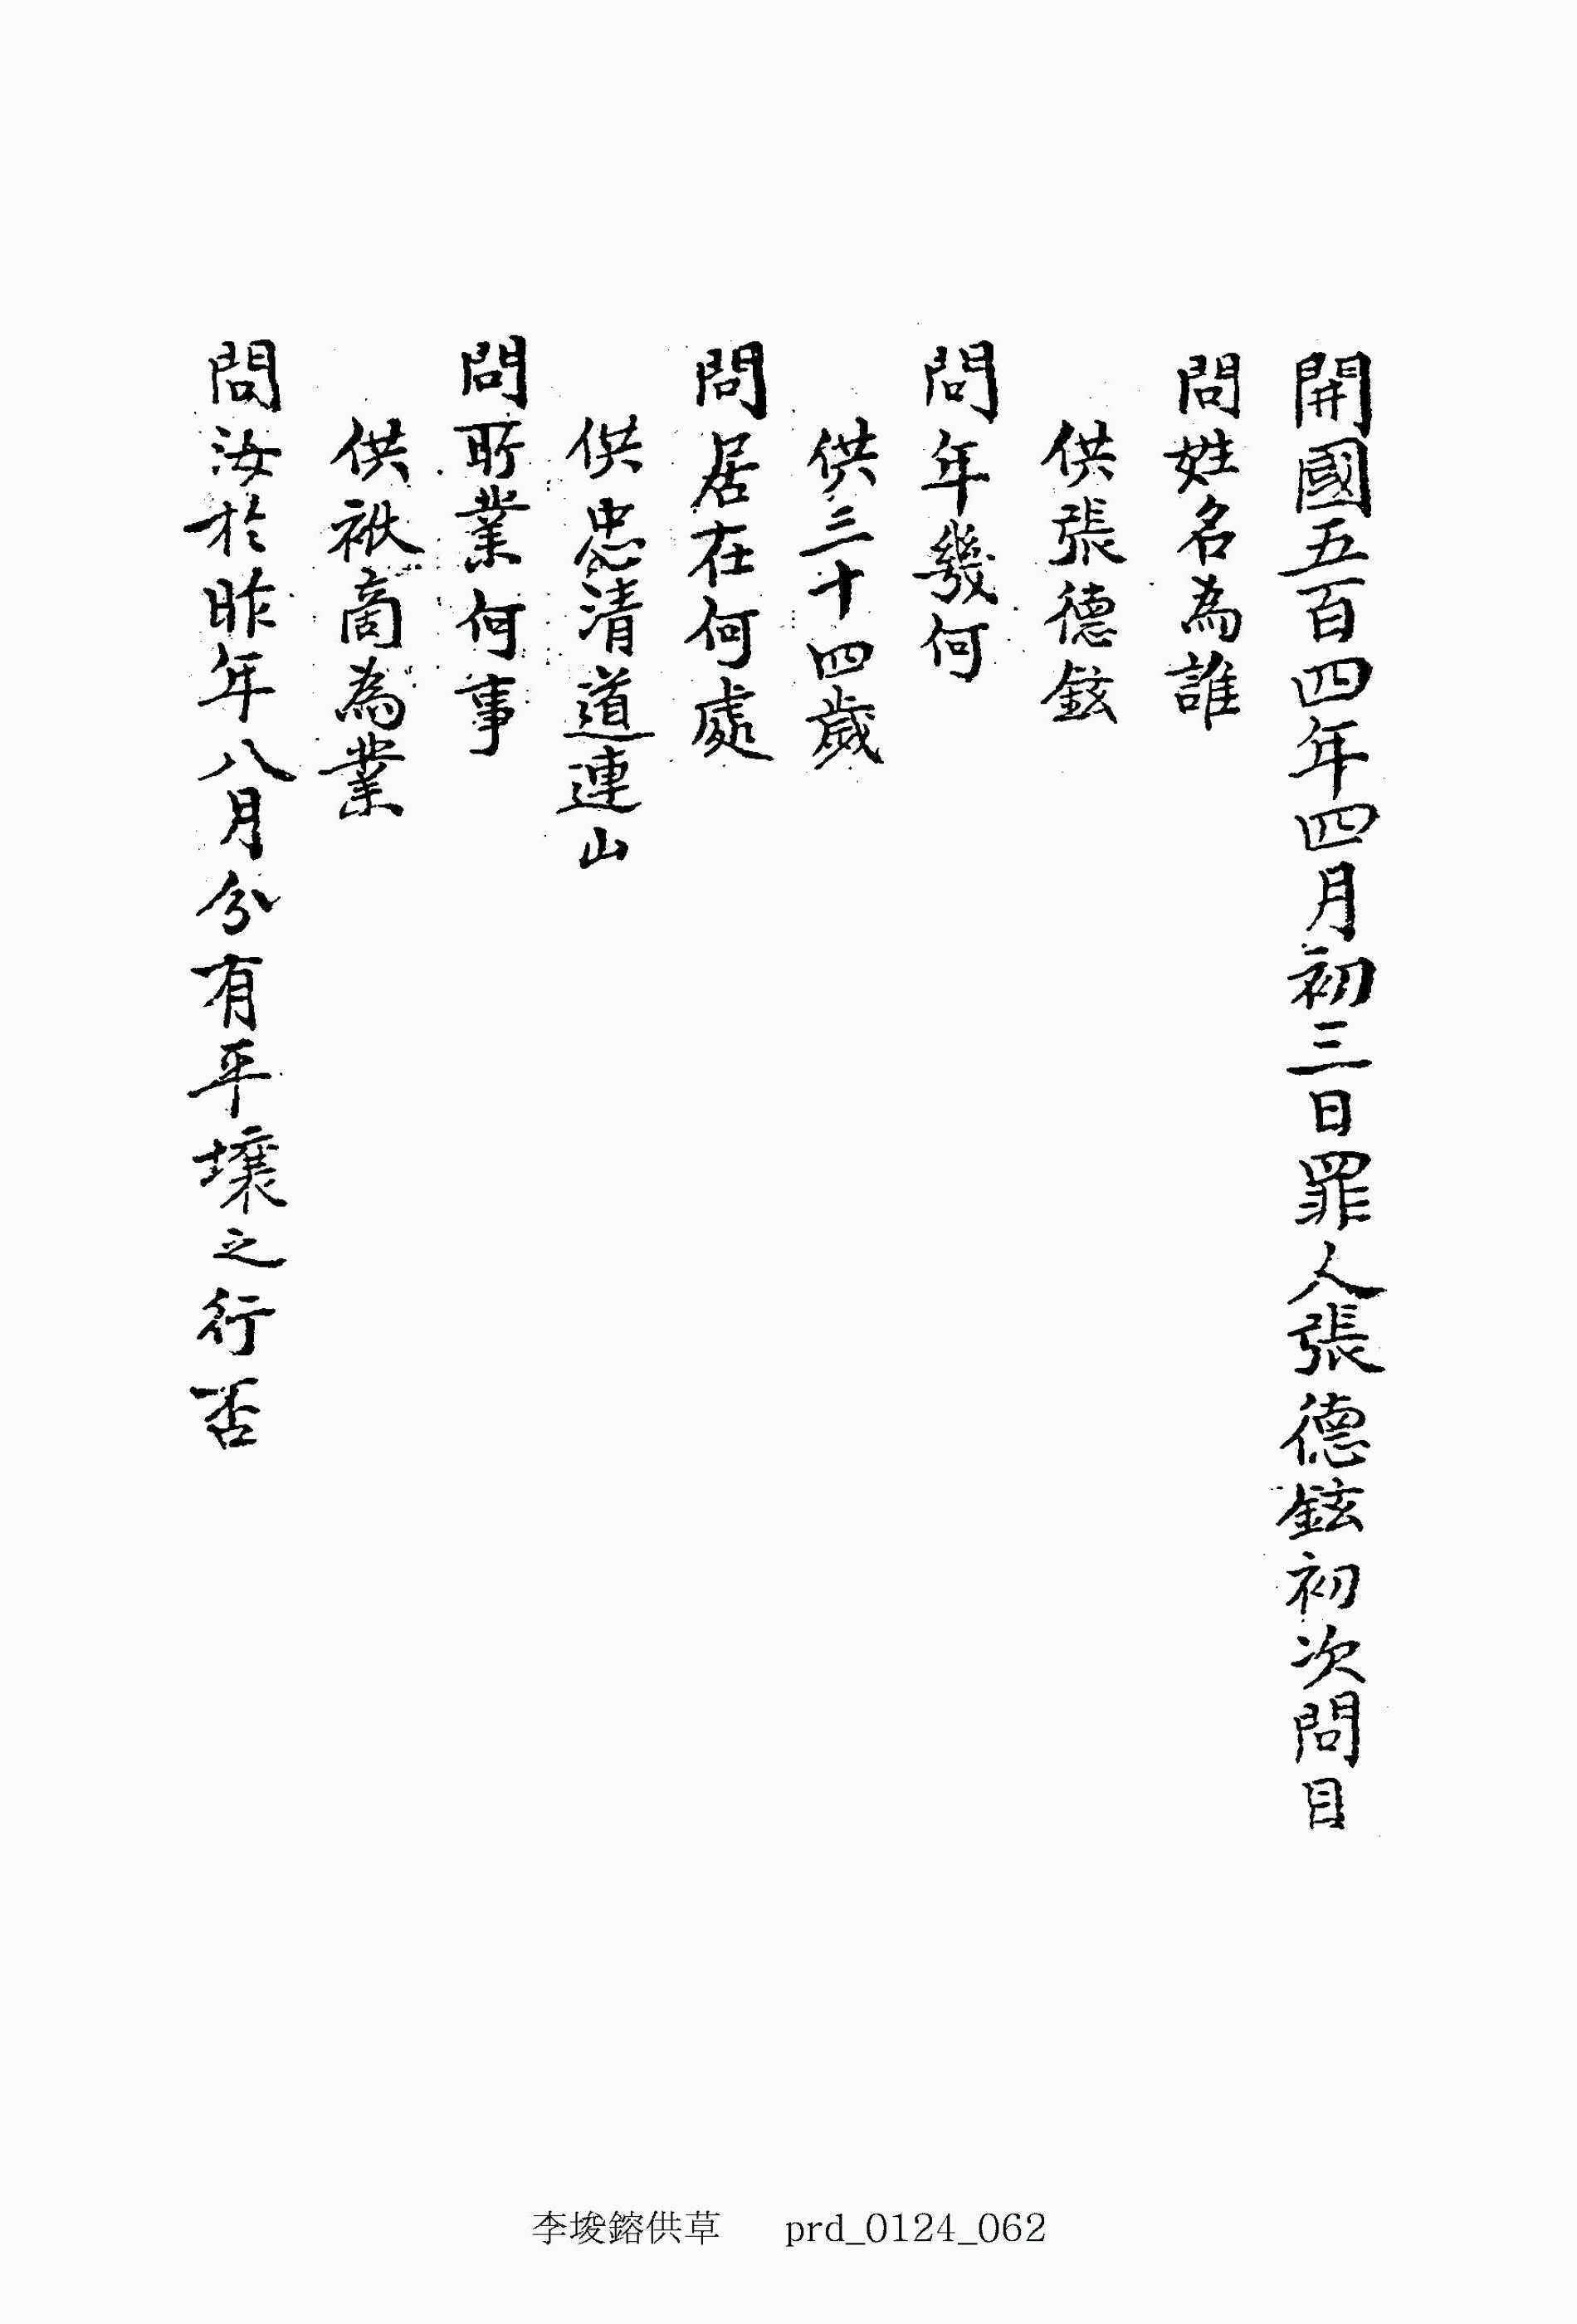 開國五百四年四月初三日罪人張德鉉初次問目
問姓名為誰
供張德鉉
問年幾何
供三十四歲
問居在何處
供忠清道連山
問所業何事
供褓商為業
問汝於昨年八月分有平壤之行否
李埈鎔供草 prd_0124_062